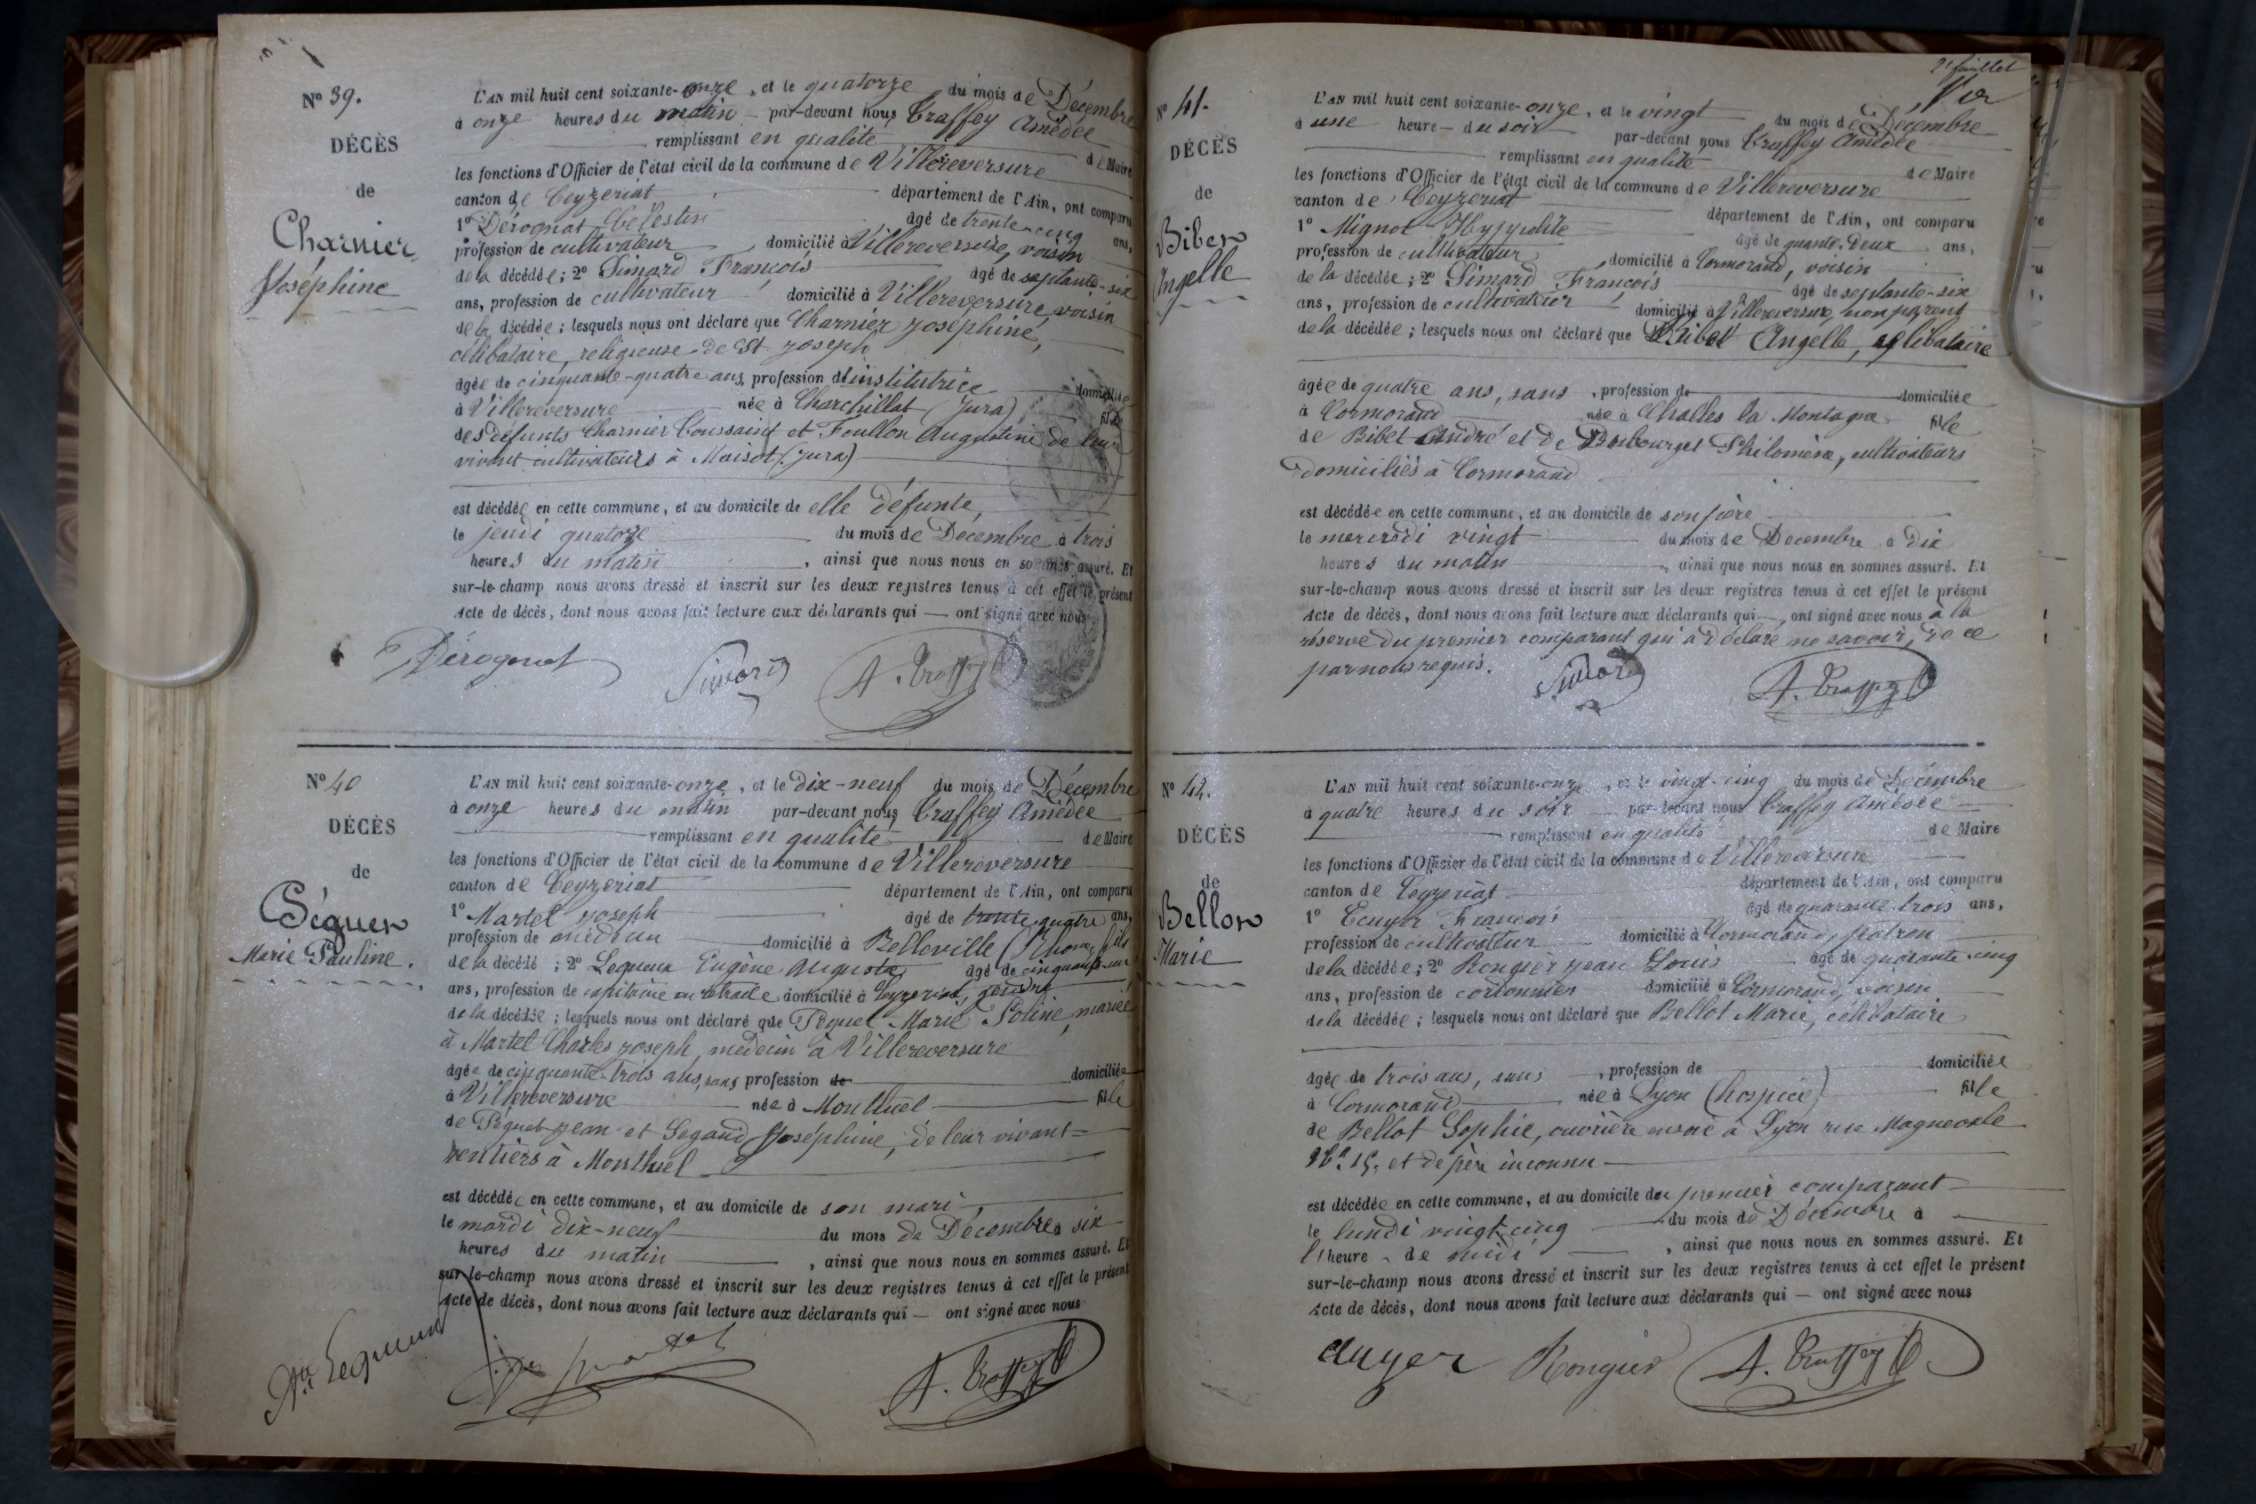 Nº 39.
DÉCÈS
de
Charnier
Joséphine
L'AN mil huit cent soixante-onze, et le quatorze du mois de Décembre
à onze heures du matin par-devant nous Traffey Amédée
remplissant en qualité de Maire
les fonctions d'Officier de l'état civil de la commune de Villereversure
canton de Ceyzeriat département de l'Ain, ont comparu
1º Dérognat Célestin âgé de trente-cinq ans,
profession de cultivateur domicilié à Villereversure, voisin
de la décédée; 2º Simard François âgé de septante-six
ans, profession de cultivateur domicilié à Villereversure, voisin
de la décédée; lesquels nous ont déclaré que Charnier Joséphine,
célibataire, religieuse de St Joseph
âgée de cinquante-quatre ans, profession d'institutrice domiciliée
à Villereversure née à Charchillat (Jura) fille
des défunts Charnier Toussaint et Foullon Augustine de leur
vivant cultivateurs à Maisot (Jura)
est décédée en cette commune, et au domicile de elle défunte,
le jeudi quatorze du mois de Décembre à trois
heures du matin, ainsi que nous nous en sommes assuré. Et
sur-le-champ nous avons dressé et inscrit sur les deux registres tenus à cet effet le présent
Acte de décès, dont nous avons fait lecture aux déclarants qui — ont signé avec nous
Dérognat Simard A. Traffey
Nº 40
DÉCÈS
de
Péguet
Marie Pauline.
L'AN mil huit cent soixante-onze, et le dix-neuf du mois de Décembre
à onze heures du matin par-devant nous Traffey Amédée
remplissant en qualité de Maire
les fonctions d'Officier de l'état civil de la commune de Villereversure
canton de Ceyzeriat département de l'Ain, ont comparu
1º Martel Joseph âgé de trente-quatre ans,
profession de médecin domicilié à Belleville (Rhône, fils
de la décédé; 2º Lequeux Eugène Auguste, âgé de cinquante-un
ans, profession de capitaine en retraite domicilié à Ceyzeriat, gendre
de la décédée; lesquels nous ont déclaré que Péguet Marie Poline, mariée
à Martel Charles Joseph, médecin à Villereversure
âgée de cinquante-trois ans, sans profession de domiciliée
à Villereversure née à Montluel fille
de Péguet Jean et Segaud Joséphine, de leur vivant
rentiers à Montluel
est décédée en cette commune, et au domicile de son mari
le mardi dix-neuf du mois de Décembre à six
heures du matin, ainsi que nous nous en sommes assuré. Et
sur-le-champ nous avons dressé et inscrit sur les deux registres tenus à cet effet le présent
Acte de décès, dont nous avons fait lecture aux déclarants qui — ont signé avec nous
Lequeux Martel A. Traffey
2e feuillet
Nº 41.
DÉCÈS
de
Bibet
Angelle
L'AN mil huit cent soixante-onze, et le vingt du mois de Décembre
à une heure du soir par-devant nous Traffey Amédée
remplissant en qualité de Maire
les fonctions d'Officier de l'état civil de la commune de Villereversure
canton de Ceyzeriat département de l'Ain, ont comparu
1º Mignot Hyppolite âgé de quante-deux ans,
profession de cultivateur, domicilié à Cormorand, voisin
de la décédée; 2º Simard François âgé de septante-six
ans, profession de cultivateur domicilié à Villereversure, non parent
de la décédée; lesquels nous ont déclaré que Bibet Angelle, célibataire
âgée de quatre ans, sans, profession de domiciliée
à Cormorand née à Challes la Montagne fille
de Bibet André et de Dubourget Philomène, cultivateurs
domiciliés à Cormorand
est décédée en cette commune, et au domicile de son père
le mercredi vingt du mois de Décembre à dix
heures du matin, ainsi que nous nous en sommes assuré. Et
sur-le-champ nous avons dressé et inscrit sur les deux registres tenus à cet effet le présent
Acte de décès, dont nous avons fait lecture aux déclarants qui —, ont signé avec nous à la
réserve du premier comparant qui a déclaré ne savoir, de ce
par nous requis.
Simard A. Traffey
Nº 42.
DÉCÈS
de
Bellot
Marie
L'AN mil huit cent soixante-onze, et le vingt-cinq du mois de Décembre
à quatre heures du soir par-devant nous Traffey Amédée
remplissant en qualité de Maire
les fonctions d'Officier de l'état civil de la commune de Villereversure
canton de Ceyzeriat département de l'Ain, ont comparu
1º Ecuyer François âgé de quarante-trois ans,
profession de cultivateur domicilié à Cormorand, patron
de la décédée; 2º Rongier Jean Louis âgé de quarante-cinq
ans, profession de cordonnier domicilié à Cormorand, voisin
de la décédée; lesquels nous ont déclaré que Bellot Marie, célibataire
âgée de trois ans, sans, profession de domiciliée
à Cormorand née à Lyon (hospice) fille
de Bellot Sophie, ouvrière à Lyon rue
Nº 15, et de père inconnu
est décédée en cette commune, et au domicile du premier comparant
le lundi vingt-cinq du mois de Décembre à
l'heure de midi, ainsi que nous nous en sommes assuré. Et
sur-le-champ nous avons dressé et inscrit sur les deux registres tenus à cet effet le présent
Acte de décès, dont nous avons fait lecture aux déclarants qui — ont signé avec nous
Rongier A. Traffey